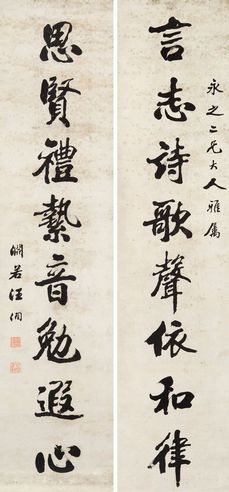 永之二兄大人雅屬
言志詩歌聲依和律
思賢禮縶音勉遐心
淵若汪洵